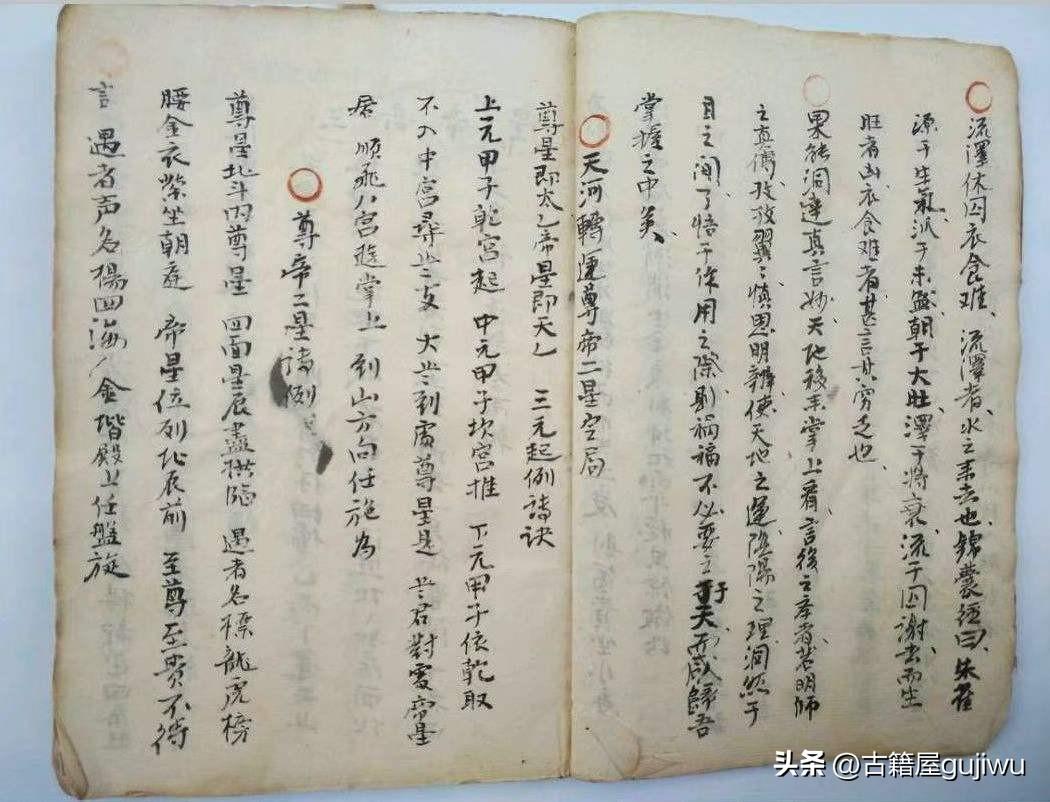 流澤休囚衣食难、流澤者、水之来去也、錦囊经曰、朱雀
源于生氣、派于未盛、朝于大旺、澤于將衰、流于囚謝、去而生
旺者山、衣食难者甚言其穷乏也、
果能洞達真言妙、天地移来掌上看、言後之来者若明師
之真傳孜孜翼〻慎思明辨使天地之運陰陽之理洞然于
目之间了悟于作用之際則禍福不必要之于天而咸歸吾
掌握之中矣、
天河轉運尊帝二星空局
尊星即太乙帝星即天乙 三元起例詩訣
上元甲子乾宮起 中元甲子坎宮推 下元甲子依乾取
不入中宮尋 到處尊星是 君對處帝星
居 順飛八宮遊掌上 到山方向任施為
尊帝二星詩例
尊星北斗内尊星 四面星辰盡拱臨 遇者名標龍虎榜
腰金衣紫坐朝庭 帝星位列北辰前 至尊至贵不待
言 遇者声名揚四海 金階殿上任盤旋
头条 @古籍屋gujiwu